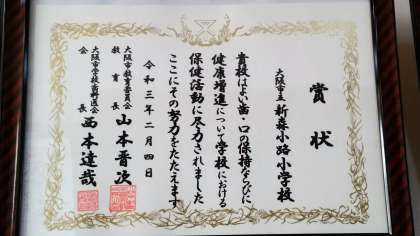 賞状
大阪市立 新森小路小学校
貴校はよい歯・口の保持ならびに
健康増進について学校における
保健活動に尽力されました
ここにその努力をたたえます
令和三年二月四日
大阪市教育委員会
教育長 山本晋次
大阪市学校歯科医会
会長 西本達哉